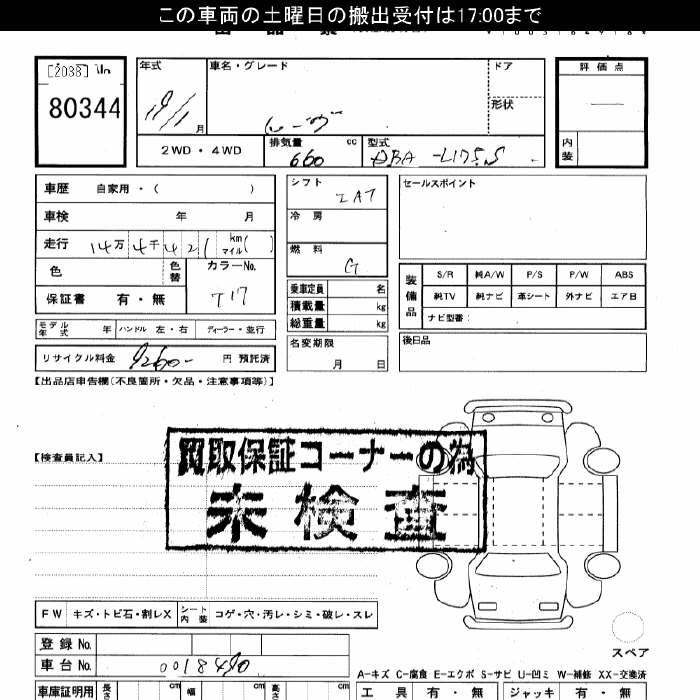 この車両の土曜日の搬出受付は17:00まで
[2038]
80344
年式
月
車名・グレード
ムーヴ
ドア
形状
評価点
内装
2WD・4WD
排気量 cc
660
型式
DBA-L175S
車歴 自家用・( )
車検 年 月
走行 14万4千421 km マイル( )
色 色替
カラーNo.
T17
保証書 有・無
モデル年式 年 ハンドル 左・右 ディーラー・並行
リサイクル料金 9260- 円 預託済
シフト
IAT
冷房
燃料
G
乗車定員 名
積載量 kg
総重量 kg
名変期限
月 日
セールスポイント
装備品
S/R 純A/W P/S P/W ABS
純TV 純ナビ 革シート 外ナビ エアB
ナビ型番:
後日品
【出品店申告欄(不良箇所・欠品・注意事項等)】
【検査員記入】
買取保証コーナーの為
未検査
FW キズ・トビ石・割レX シート内装 コゲ・穴・汚レ・シミ・破レ・スレ
登録No.
車台No. 0018490
スペア
A-キズ C-腐食 E-エクボ S-サビ U-凹ミ W-補修 XX-交換済
車庫証明用 長さ cm 幅 cm 高さ cm
工具 有・無 ジャッキ 有・無